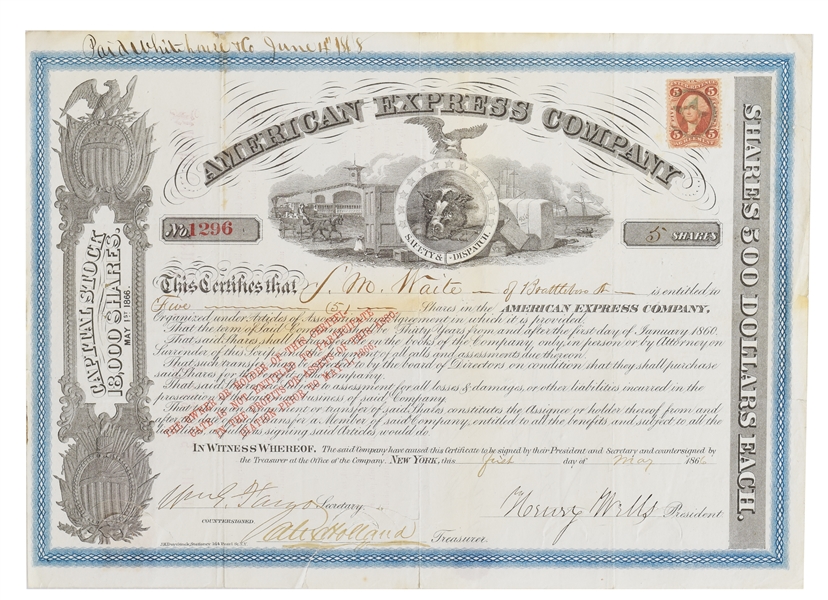 Paid Whitehouse & Co June
AMERICAN EXPRESS COMPANY
5 5
5 5
SAFETY & DISPATCH.
No. 1296
5 SHARES
CAPITAL STOCK
18,000 SHARES.
MAY 1ST 1866.
SHARES 500 DOLLARS EACH.
This Certifies that S. M. Waite of Brattleboro is entitled to
Five (5) Shares in the AMERICAN EXPRESS COMPANY,
Organized under Articles of in which it is provided.
That the term of said Company Thirty Years from and after the first day of January 1860.
That said Shares shall be on the books of the Company only, in person, or by Attorney on
Surrender of this of all calls and assessments due thereon.
That such transfers to by the board of Directors on condition that they shall purchase
said Shares
That said to assessment for all losses & damages, or other liabilities incurred in the
prosecution business of said Company.
That the or transfer of said Shares constitutes the Assignee or holder thereof from and
a Member of said Company, entitled to all the benefits and subject to all the
signing said Articles would do.
THE OWNER OR HOLDER OF THIS CERTIFI-
CATE IS NOT ENTITLED TO PARTICIPATE
IN THE PROFITS OR ASSETS OF THIS ASSO-
CIATION PRIOR TO MAY 1, 1866.
IN WITNESS WHEREOF. The said Company have caused this Certificate to be signed by their President and Secretary and countersigned by
the Treasurer at the Office of the Company. NEW YORK, this first day of May 1866
Wm G. Fargo Secretary.
Henry Wells President.
COUNTERSIGNED.
Alex Holland Treasurer.